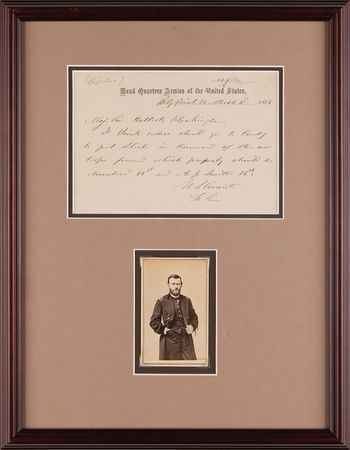 (Cipher)
Head Quarters Armies of the United States,
City Point, Va. March 2d 1865
Maj. Gen. Halleck, Washington
I think orders should go to Canby
to put Steele in command of the new
Corps formed which properly should be
numbered 13th and A. J. Smith's 16th.
U. S. Grant
Lt. Gen.